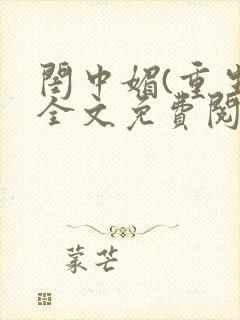 閨中媚(重生
全文免費閱
蒙芒